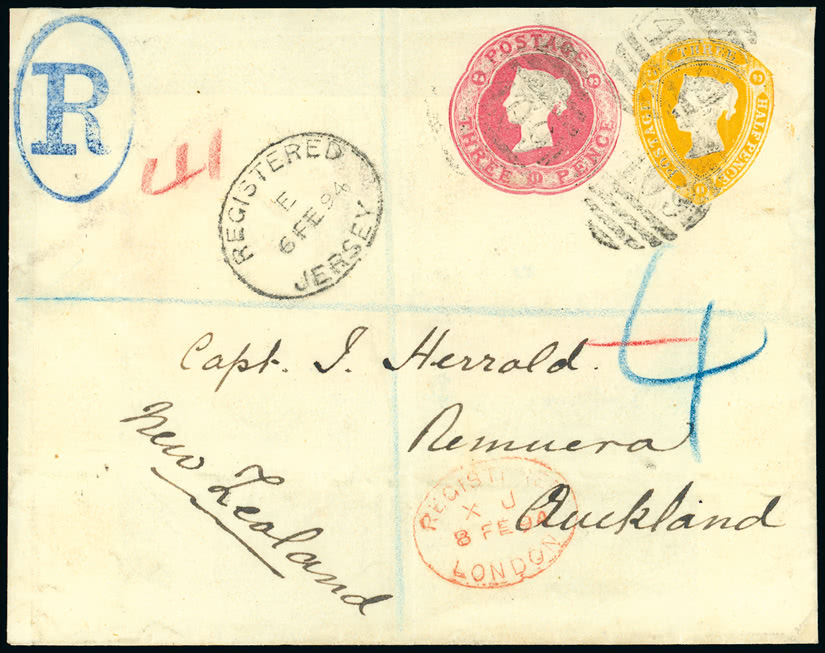 R
POSTAGE
THREE PENCE
THREE
HALF PENCE
POSTAGE
REGISTERED
E
6 FE 94
JERSEY
4
Capt. J. Herrold.
Remuera
Auckland
New Zealand
X J
8 FE 94
LONDON